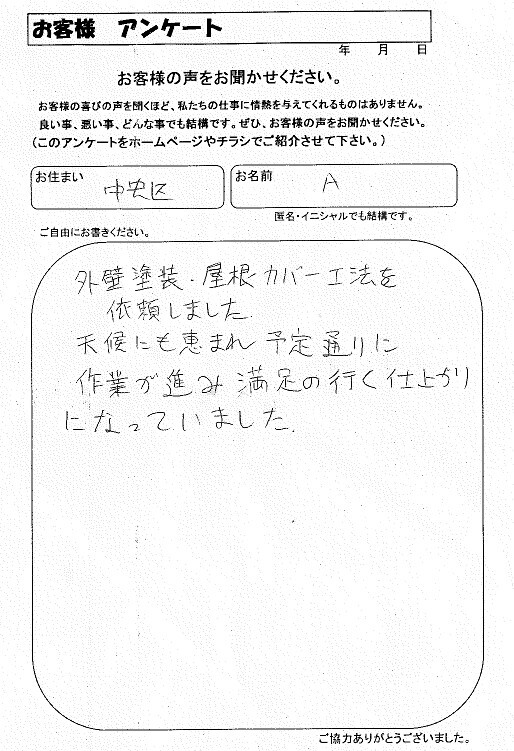 お客様　アンケート
年　月　日
お客様の声をお聞かせください。
お客様の喜びの声を聞くほど、私たちの仕事に情熱を与えてくれるものはありません。
良い事、悪い事、どんな事でも結構です。ぜひ、お客様の声をお聞かせください。
(このアンケートをホームページやチラシでご紹介させて下さい。)
お住まい　中央区
お名前　A
匿名・イニシャルでも結構です。
ご自由にお書きください。
外壁塗装・屋根カバー工法を
依頼しました.
天候にも恵まれ 予定通りに
作業が進み 満足の行く仕上がり
になっていました.
ご協力ありがとうございました。